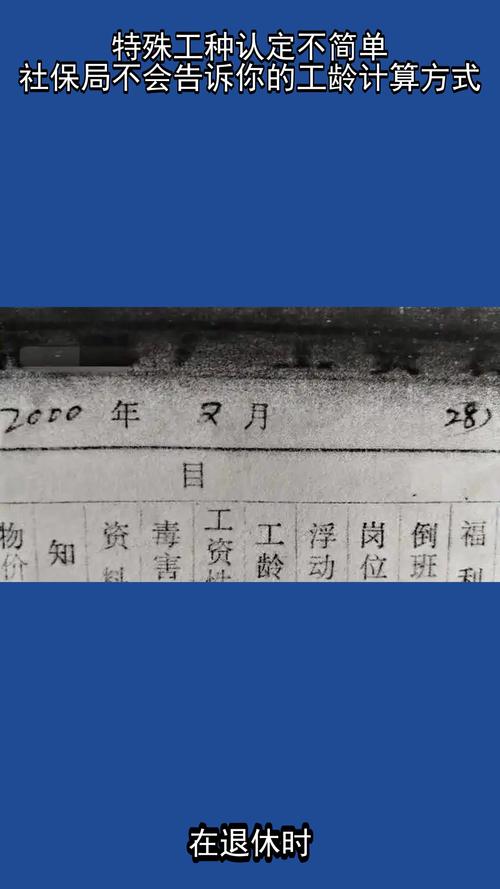 特殊工种认定不简单
社保局不会告诉你的工龄计算方式
2000 年 又 月
目
物价 知 资料 毒害 工资性 工龄 浮动 岗位 倒班 福利
在退休时